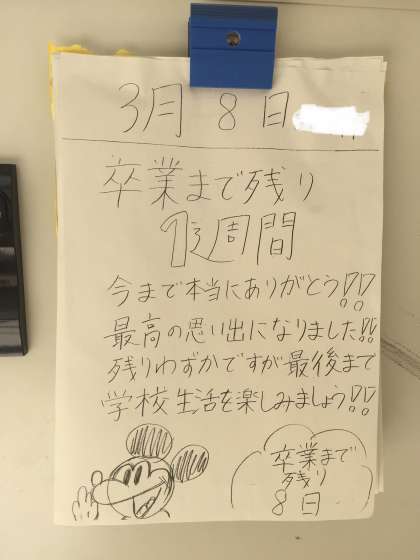 3月8日
卒業まで残り
1週間
今まで本当にありがとう!!
最高の思い出になりました!!
残りわずかですが最後まで
学校生活を楽しみましょう!!
卒業まで
残り
8日